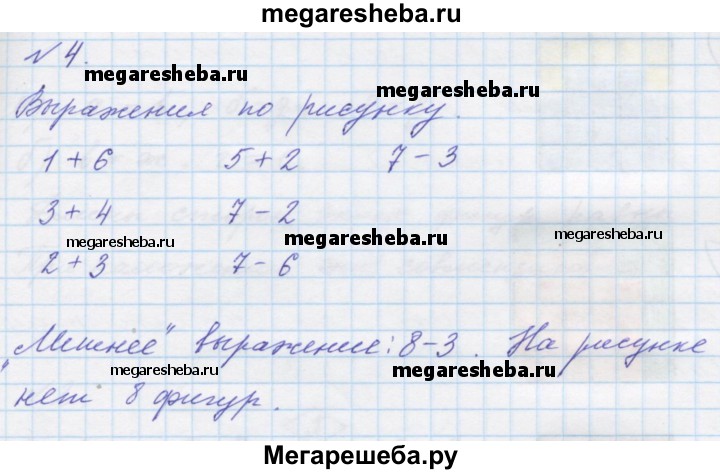 megaresheba.ru
№ 4.
megaresheba.ru
megaresheba.ru
Выражения по рисунку.
1 + 6 5 + 2 7 - 3
3 + 4 7 - 2
megaresheba.ru megaresheba.ru
2 + 3 7 - 6
„Лишнее" выражение: 8 - 3. На рисунке
megaresheba.ru
нет 8 фигур.
Мегарешеба.ру